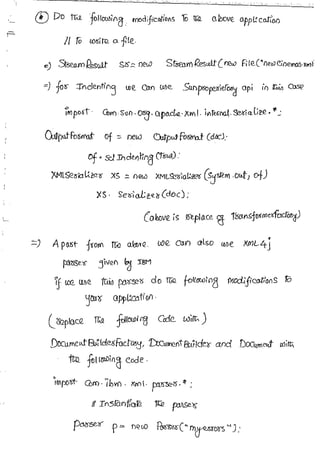 ⑥ Do the following modifications to the above application
// to write a file.
⇒) StreamResult sr = new StreamResult(new File("newcinemas.xml
⇒) for Indenting we can use Sunproprietory api in this case
import com.sun.org.apache.xml.internal.serialize.*;
OutputFormat of = new OutputFormat(doc);
of.setIndenting(true);
XMLSerializer xs = new XMLSerializer(System.out, of)
xs.serialize(doc);
(above is replace of TransformerFactory)
⇒) Apart from the above. we can also use XML4j
parser given by IBM
if we use this parser do the following modifications to
your application.
(Replace the following Code with)
DocumentBuilderFactory, DocumentBuilder and Document with
the following code.
import com.ibm.xml.parser.*;
// Instantiate the parser
Parser p = new Parser("myerrors");